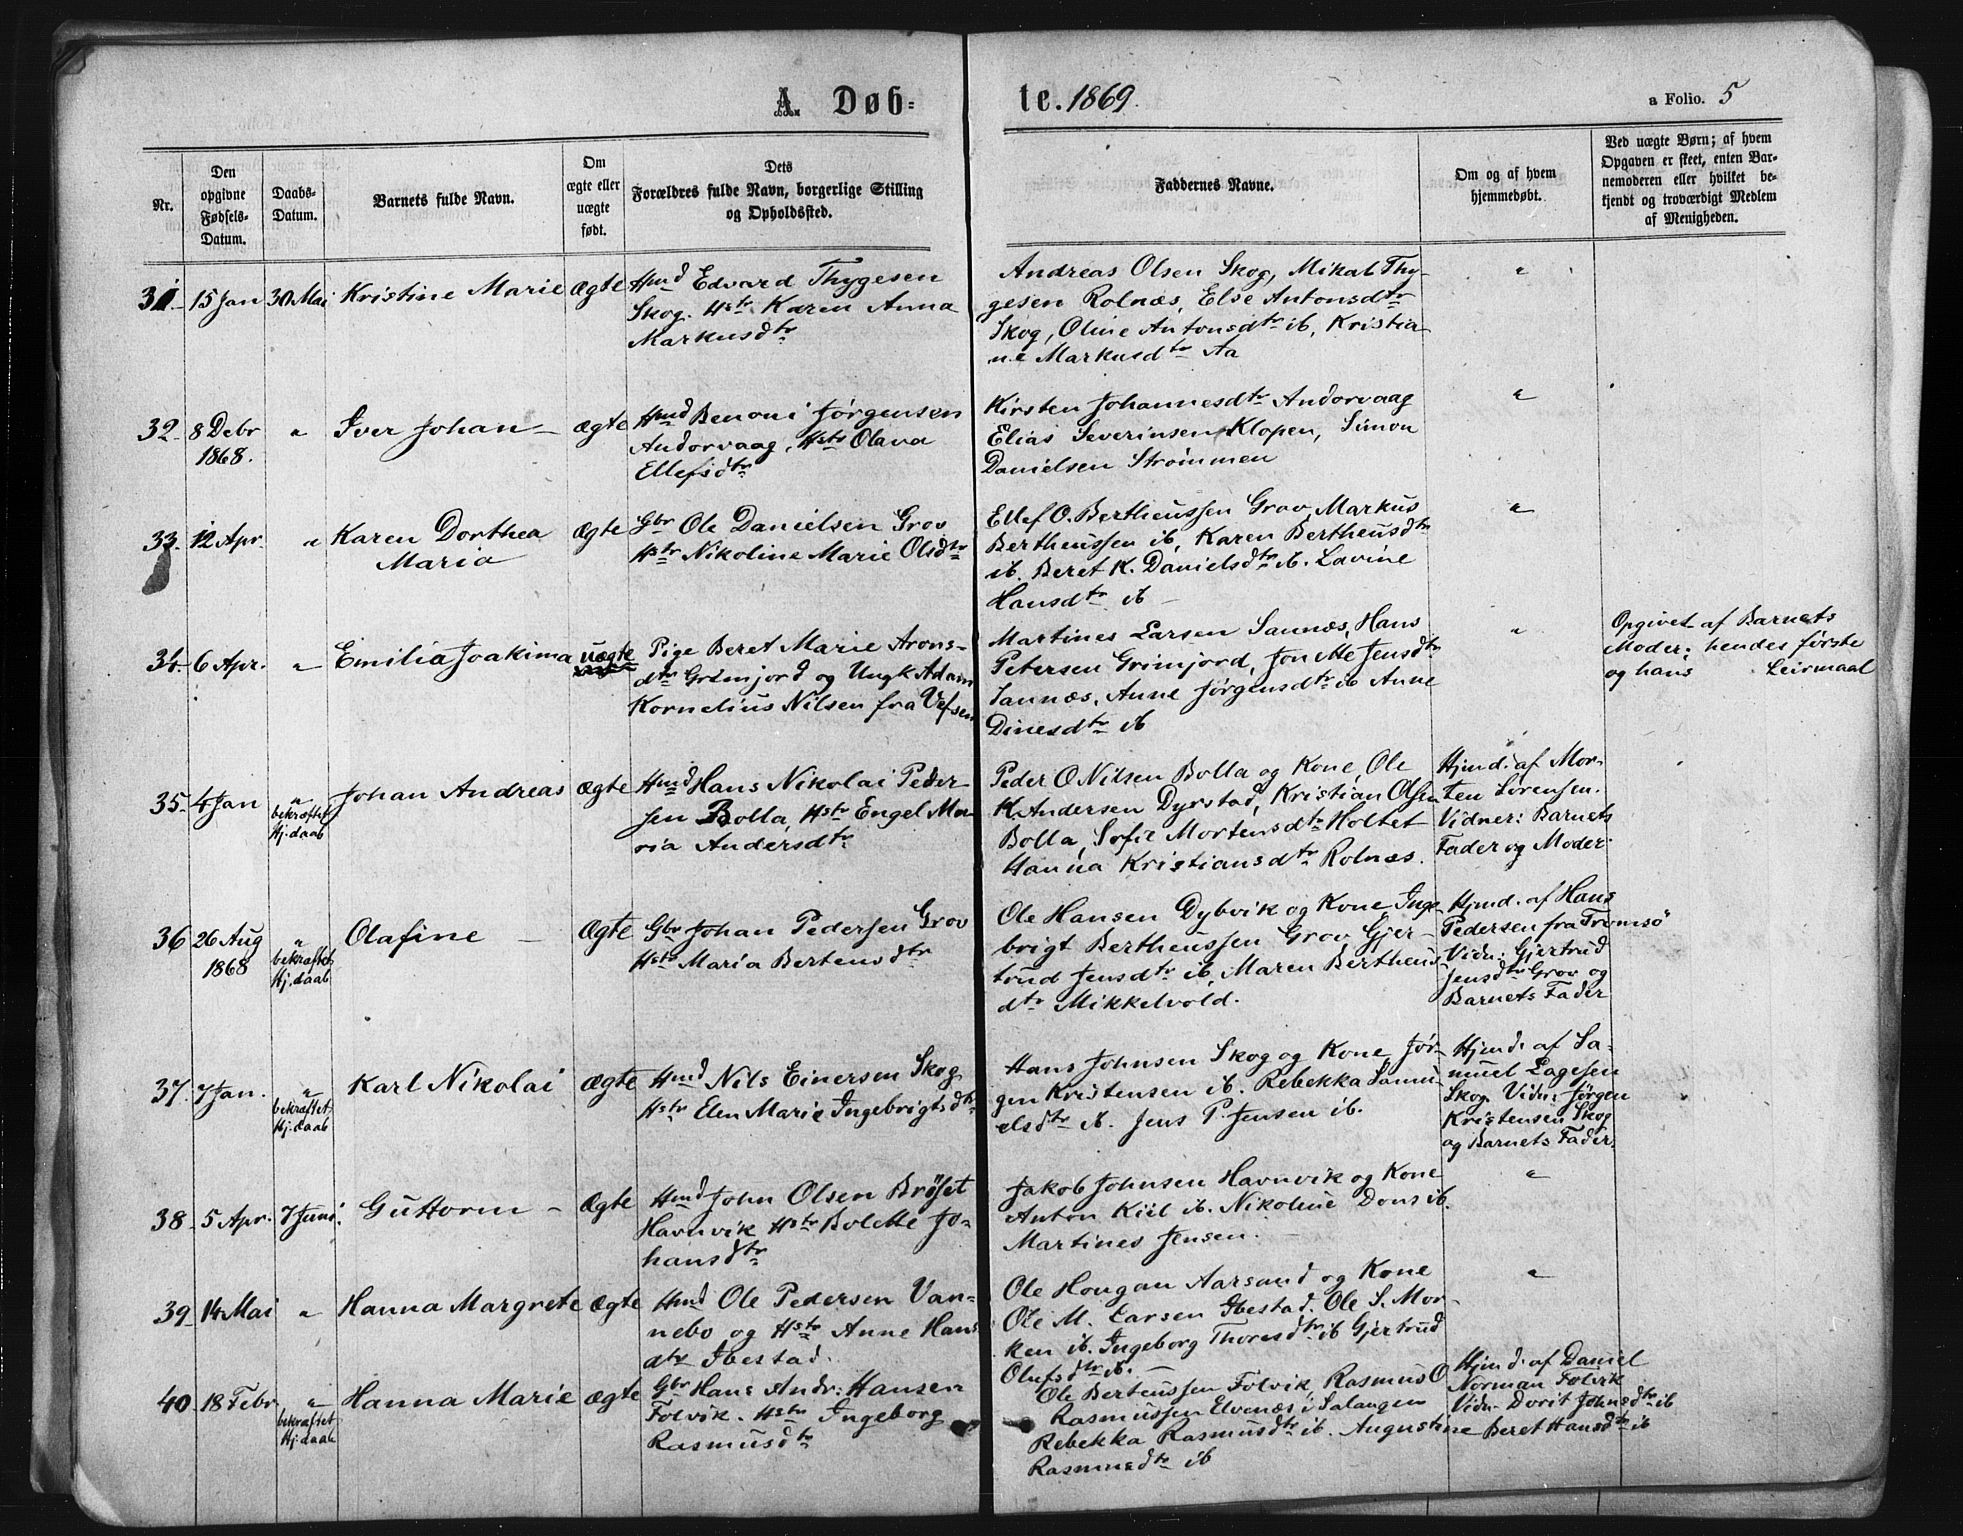 A. Døb-
te. 1869.
a Folio. 5
Nr.
Den
opgivne
Fødsels-
Datum.
Daabs-
Datum.
Barnets fulde Navn.
Om
ægte eller
uægte
født.
Dets
Forældres fulde Navn, borgerlige Stilling
og Opholdssted.
Faddernes Navne.
Om og af hvem
hjemmedøbt.
Ved uægte Børn; af hvem
Opgaven er skeet, enten Bar-
nemoderen eller hvilket be-
kjendt og troværdigt Medlem
af Menigheden.
31. 15 Jan 30 Mai Kristine Marie ægte
Hmd Edvard Thygesen
Skog. Hstr Karen Anna
Markusdtr
Andreas Olsen Skog, Mikal Thy-
gesen Rolnæs, Else Antonsdtr
Skog, Oline Antonsdtr ib, Kristia
ne Markusdtr Aa
"
32. 8 Debr " Iver Johan – ægte
1868.
Hmd Benoni Jørgensen
Andorvaag, Hstr Olava
Ellefsdtr
Kirsten Johannesdtr Andorvaag
Elias Severinsen Klopen, Simon
Danielsen Strømmen
"
33. 12 Apr. " Karen Dorthea ægte
Maria
Gbr Ole Danielsen Grov
Hstr Nikoline Marie Olsdtr
Ellef O. Bertheussen Grov, Markus
Bertheussen ib, Karen Bertheusdtr
ib. Beret K. Danielsdtr ib. Lavine
Hansdtr ib –
"
34. 6 Apr. " Emilia Joakima uægte
Pige Beret Marie Arons-
dtr Grimjord og Ungk Adam
Kornelius Nilsen fra Vefsen
Martines Larsen Sannæs, Hans
Petersen Grimjord, Jonette Jensdtr
Sannæs, Anne Jørgensdtr ib Anne
Dinesdtr ib
"
Opgivet af Barnets
Moder; hendes første
og hans Leirmaal
35. 4 Jan " Johan Andreas ægte
bekræftet
Hj.daab
Hmd Hans Nikolai Peder
sen Bolla, Hstr Engel Ma
ria Andersdtr
Peder O Nilsen Bolla og Kone, Ole
K Andersen Dyrstad, Kristian Olsen
Bolla, Sofie Mortensdtr Holtet
Hanna Kristiansdtr Rolnæs.
Hjmd. af Mor-
ten Sørensen.
Vidner: Barnets
Fader og Moder.
36 26 Aug " Olafine – Ægte
1868
bekræftet
Hj.daab
Gbr Johan Pedersen Grov
Hstr Maria Bertensdtr
Ole Hansen Dybvik og Kone Inge
brigt Bertheussen Grov Gjer-
trud Jensdtr ib, Maren Bertheus
dtr Mikkelvold.
Hjmd. af Hans
Pedersen fra Tromsö
Vidn: Gjertrud
Jensdtr Grov og
Barnets Fader
37. 7 Jan. " Karl Nikolai ægte
bekræftet
Hj.daab
Hmd Nils Einersen Skog
Hstr Elen Marie Ingebrigtsdtr
Hans Johnsen Skog og Kone Jør-
gen Kristensen ib. Rebekka Samu
elsdtr ib. Jens P. Jensen ib.
Hjmd. af Sa-
muel Lagesen
Skog. Vidn: Jørgen
Kristensen Skog
og Barnets Fader.
38. 5 Apr. 7 Juni. Guttorm – Ægte
Hmd John Olsen Brøset
Havnvik Hstr Bolette Jo-
hansdtr
Jakob Johnsen Havnvik og Kone
Anton Kiil ib. Nikoline Dons ib.
Martines Jensen.
"
39. 14 Mai " Hanna Margrete ægte
Hmd Ole Pedersen Van-
nebo og Hstr Anne Hans
dtr Ibestad.
Ole Hougan Aarsand og Kone
Ole M. Larsen Ibestad. Ole S. Mor-
ken ib. Ingeborg Thoresdtr ib Gjertrud
Olufsdtr ib.
"
40. 18 Febr " Hanna Marie ægte
bekræftet
Hj.daab
Gbr Hans Andr: Hansen
Folvik. Hstr Ingeborg
Rasmusdtr
Ole Berteussen Folvik, Rasmus O
Rasmussen Elvenæs i Salangen
Rebekka Rasmusdtr ib. Augustine
Rasmusdtr ib
Hjmd. af Daniel
Norman Folvik
Vidn. Dorit Johnsdtr ib
Beret Hansdtr ib